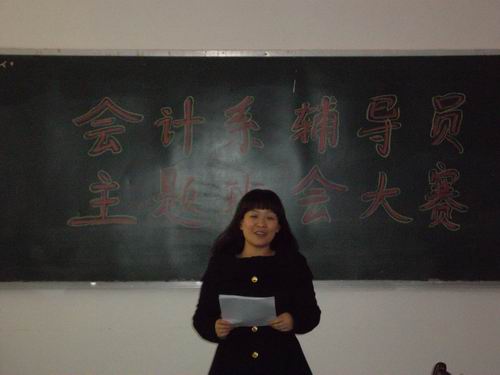 会计系辅导员
主题班会大赛